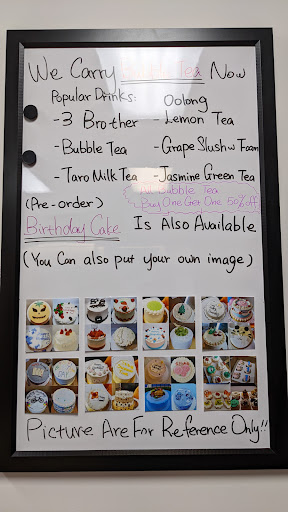 We Carry Bubble Tea Now
Popular Drinks: Oolong
-3 Brother - Lemon Tea
-Bubble Tea -Grape Slush w Foam
-Taro Milk Tea -Jasmine Green Tea
(Pre-order) All Bubble Tea
Buy One Get One 50% off
Birthday Cake Is Also Available
(You Can also put your own image)
Picture Are For Reference Only!!